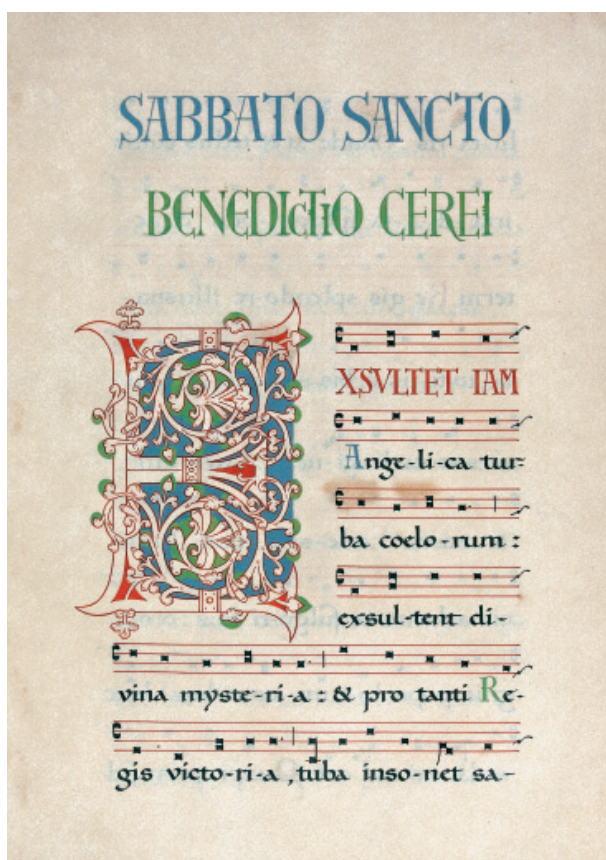 SABBATO SANCTO
BENEDICTIO CEREI
EXSVLTET IAM
Ange-li-ca tur-
ba coelo-rum :
exsul-tent di-
vina myste-ri-a : & pro tanti Re-
gis victo-ri-a , tuba inso-net sa-